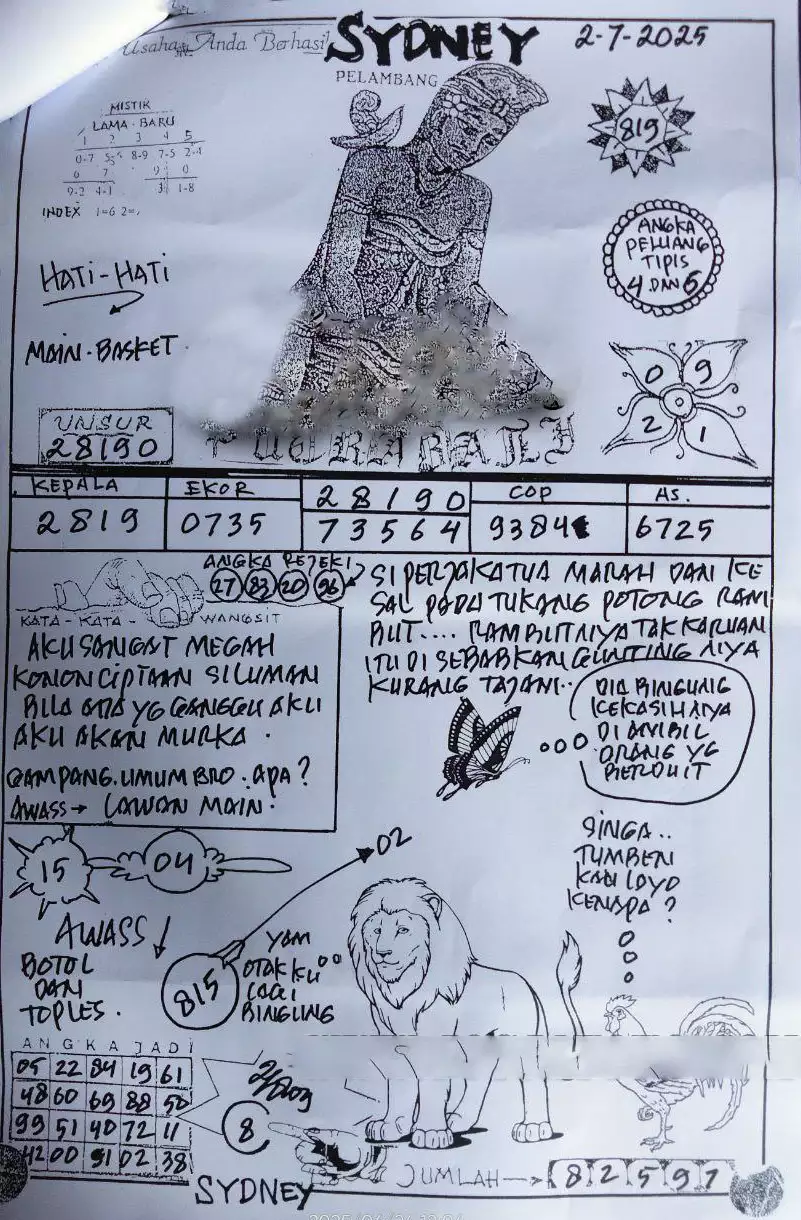 Usaha Anda Berhasil
SYDNEY
2-7-2025
PELAMBANG
MISTIK
LAMA - BARU
1 2 3 4 5
0-7 8-9 7-5 2-4
6 7 9 0
9-2 4-1 1-8
INDEX 1=6
819
ANGKA
PELUANG
TIPIS
4 DAN 5
HATI-HATI
MAIN - BASKET
0 9
2 1
UNSUR
28190
KEPALA EKOR 28190 COP AS.
2819 0735 73564 9384 6725
ANGKA REJEKI
27 83 20 96
KATA - KATA - WANGSIT
AKU SANGAT MEGAH
KONON CIPTAAN SILUMAN
BILA ADA YG GANGGU AKU
AKU AKAN MURKA .
GAMPANG. UMUM BRO. APA?
AWASS → LAWAN MAIN.
SI PERJAKATUA MARAH DAN KE
SAL PADA TUKANG POTONG RAM
BUT.... RAMBUTNIYA TAK KARUAN
ITU DI SEBABKAN GUNTING NIYA
KURANG TAJAM..
DIA BINGUNG
KEKASIHNIYA
DI AMBIL
ORANG YG
BERDUIT
15 04
02
SINGA..
TUMBEN
KAU LOYO
KENAPA ?
AWASS ↓
BOTOL
DAN
TOPLES .
815
YAM
OTAK KU
LAGI
BINGUNG
ANGKA JADI
05 22 84 19 61
48 60 69 88 50
99 51 40 72 11
42 00 91 02 38
8
JUMLAH → 8 2 5 9 7
SYDNEY